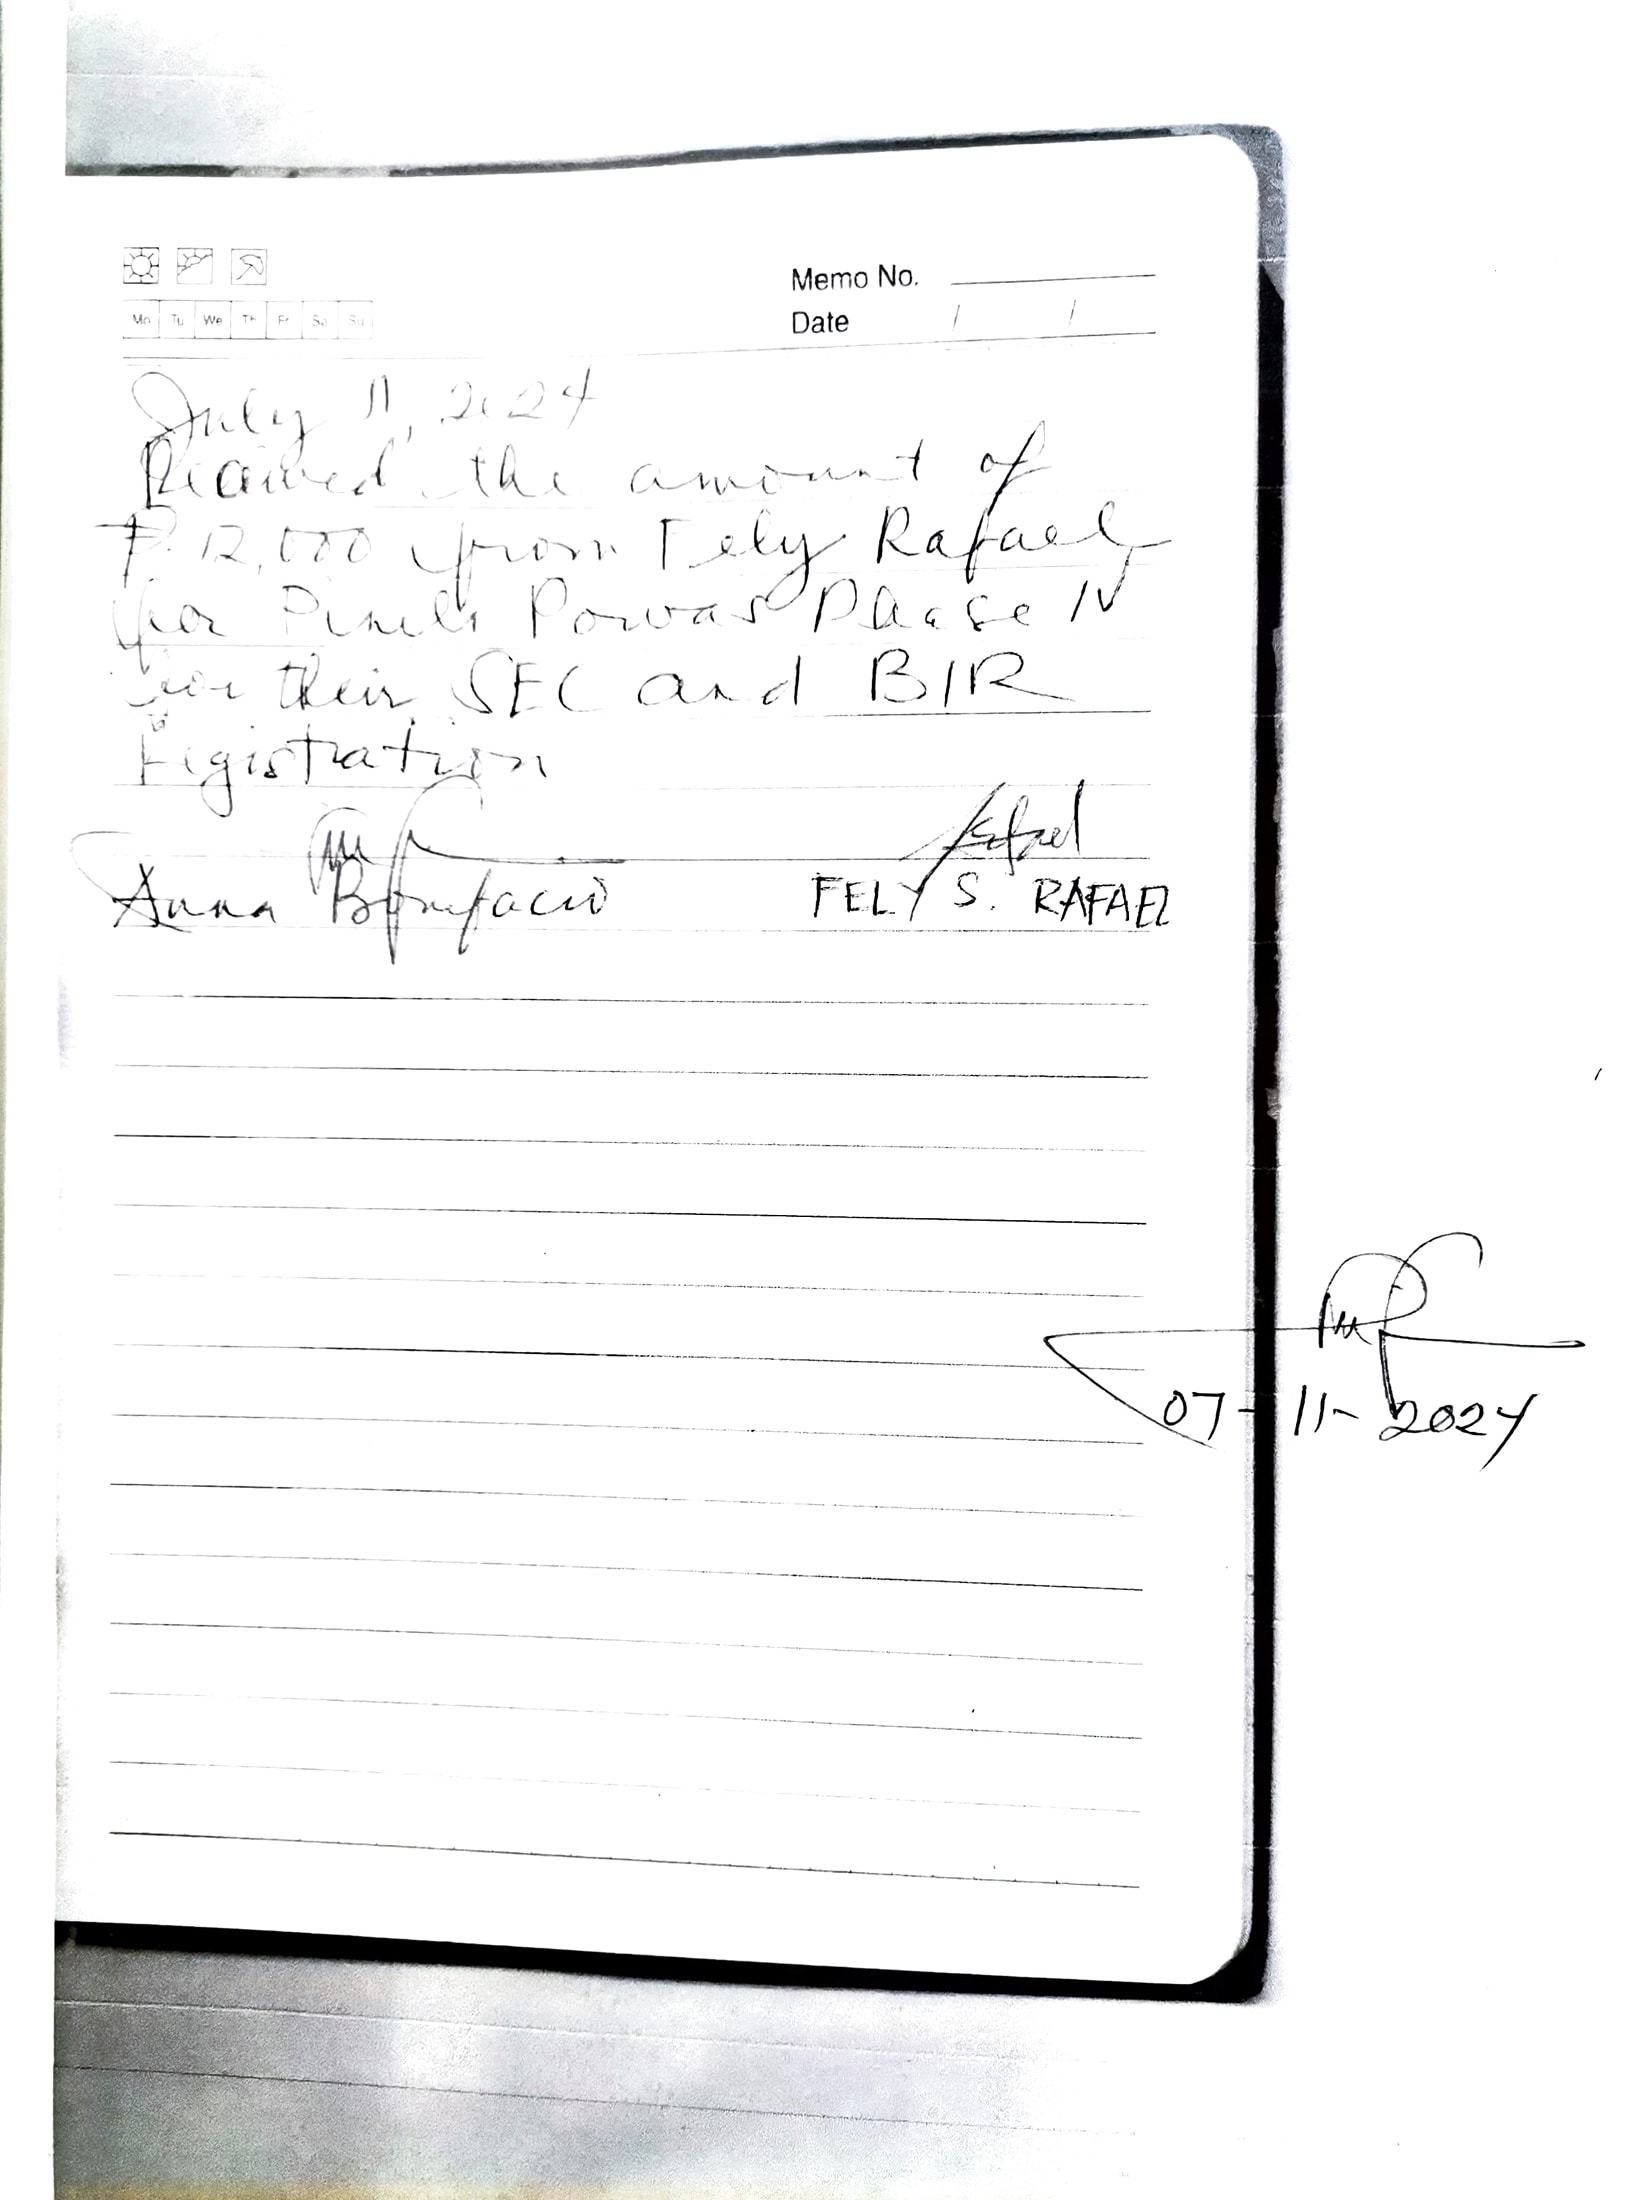 Memo No.
Mo Tu We Th Fr Sa Su
Date / /
July 11, 2024
Received the amount of
₱ 12,000 from Fely Rafael
for Powas Phase IV
for their SEC and BIR
Registration
Anna Bonifacio FELY S. RAFAEL
07-11-2024